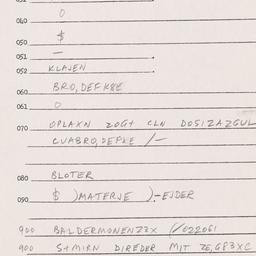 0
040
$
050
051 —
052 KLAJEN
060 BRO, DEFKBE
061 0
070 OPLAXN ZOGT CLN DOSIZAZGUL
CUABRO, DEFKE /—
080 BLOTER
090 $ )MATERJE )-EJDER
900 BALDERMONENZZX (/022061
900 S+MIRN DIREDER MIT ZE, GP3XC